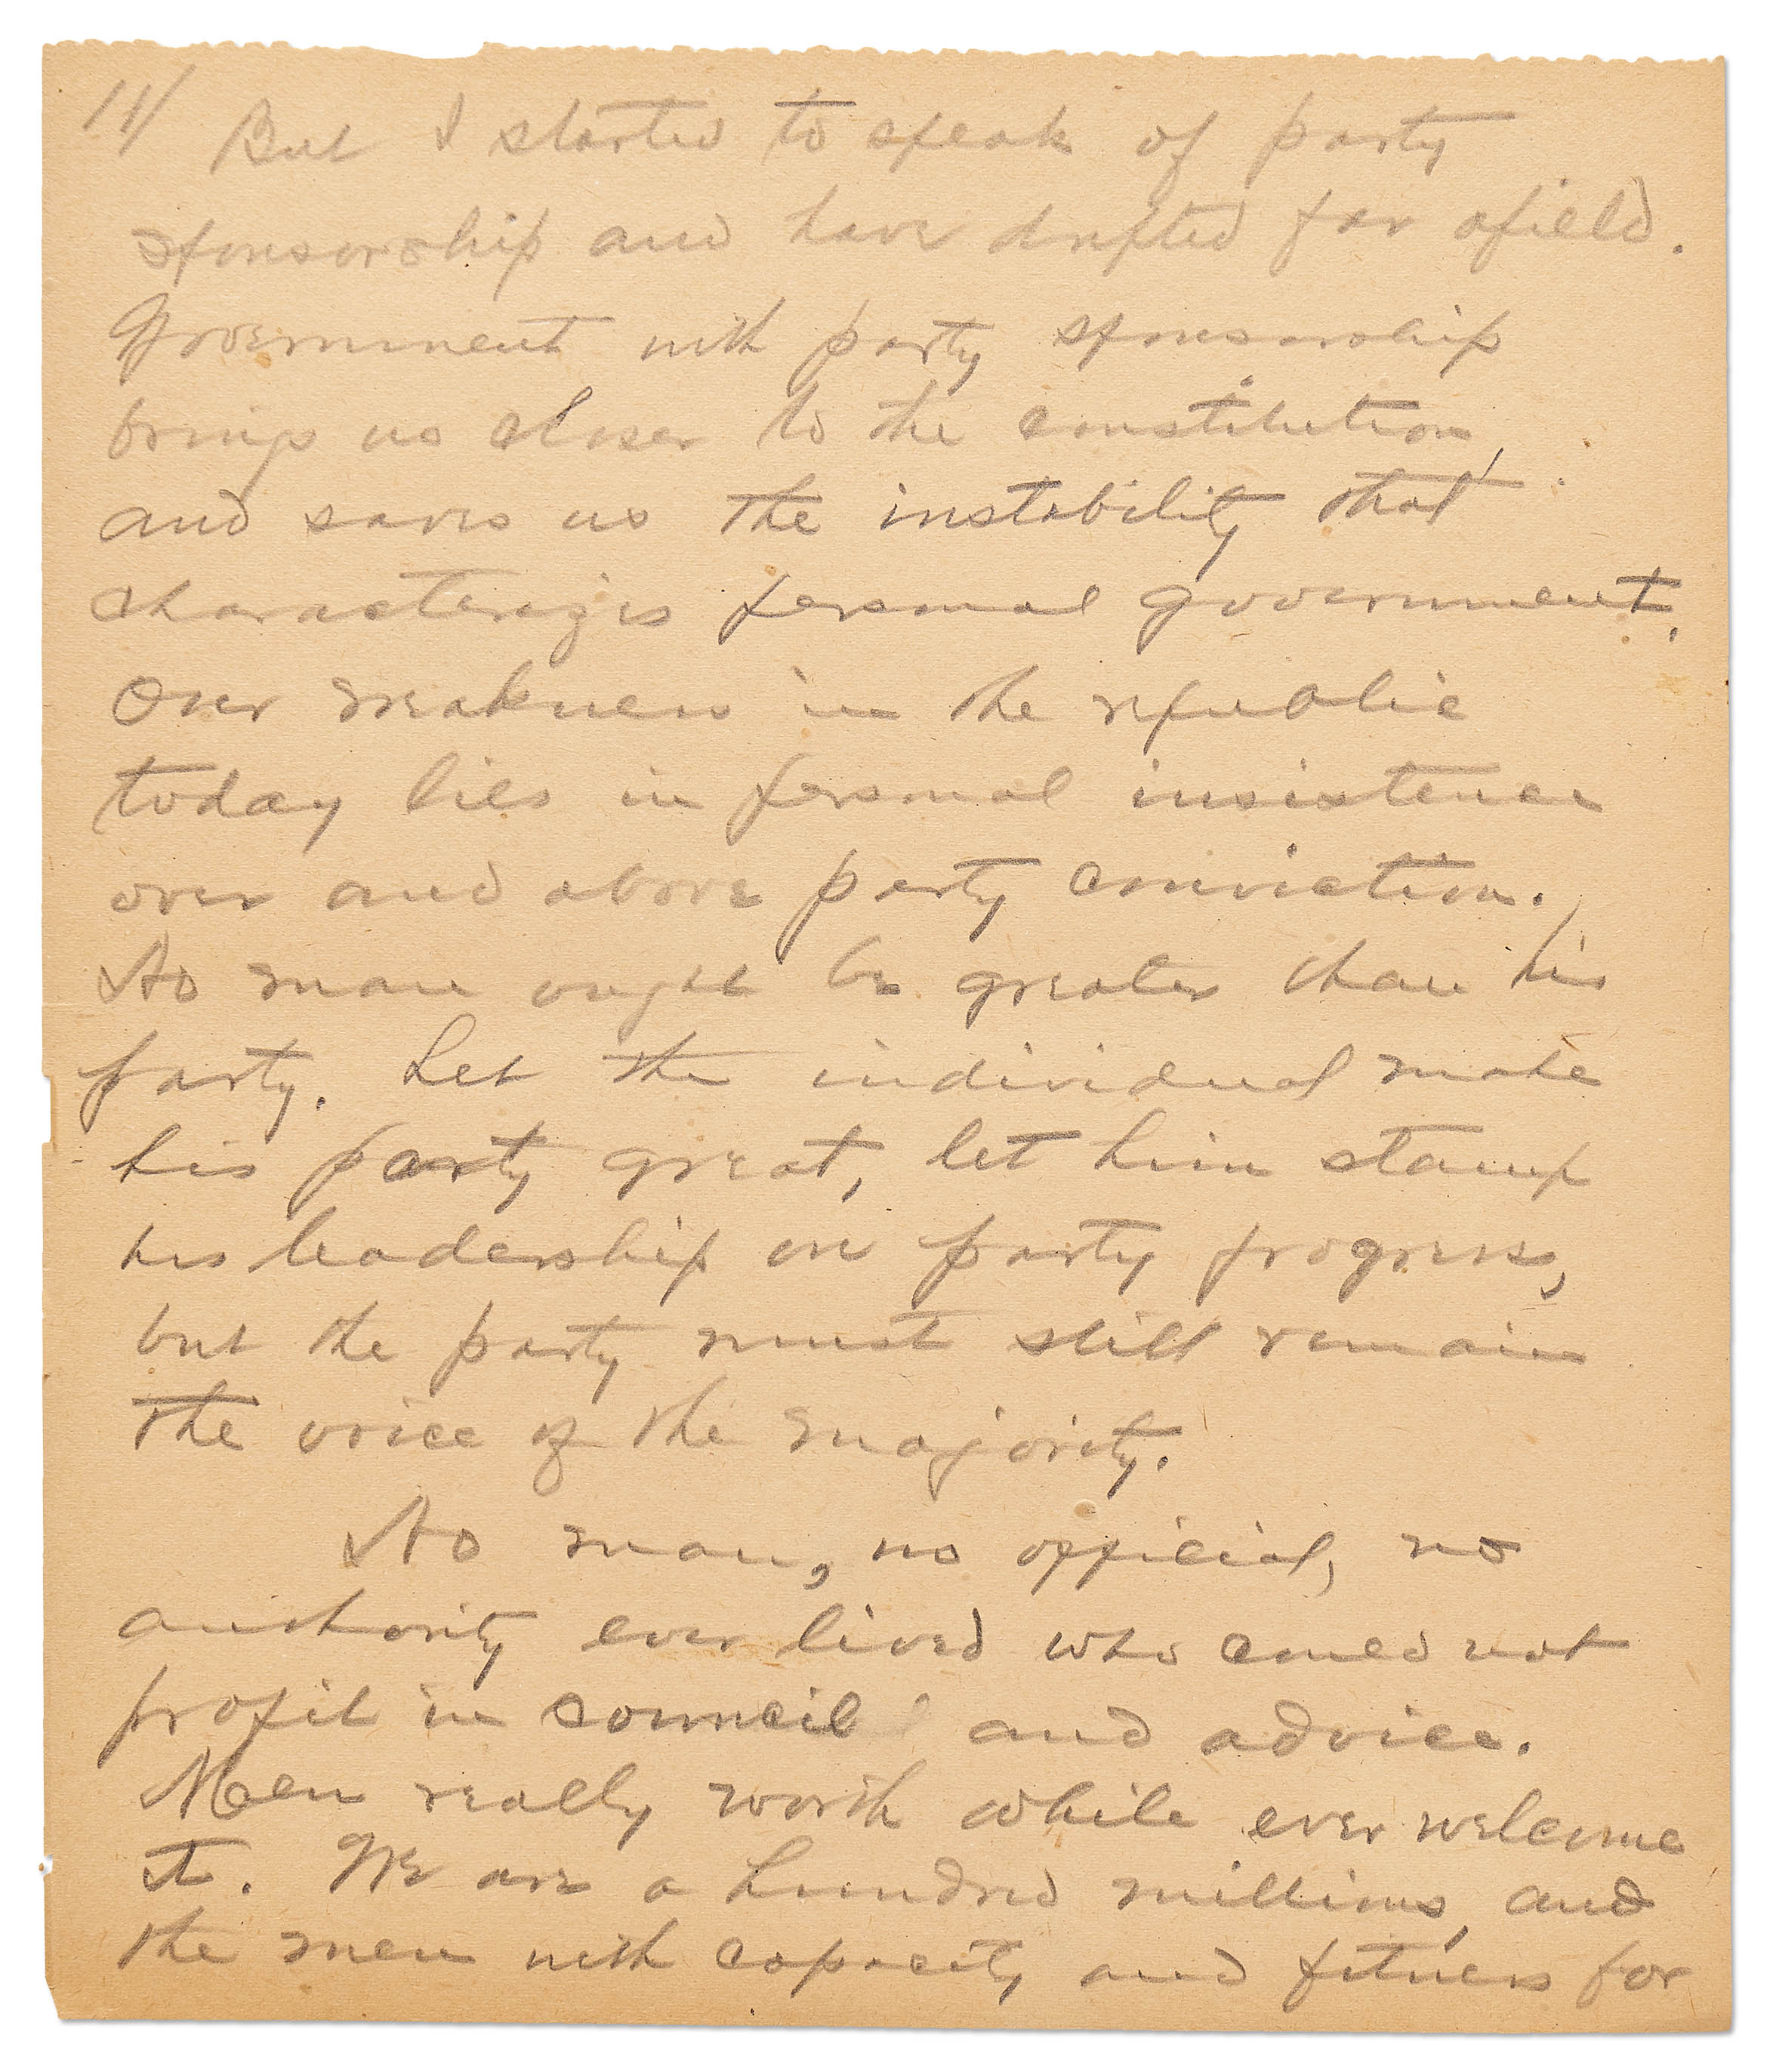 14/ But I started to speak of party
sponsorship and have drifted far afield.
Government with party sponsorship
brings us closer to the constitution,
and saves us the instability that
characterizes personal government.
Our weakness in the republic
today lies in personal insistence
over and above party conviction.
No man ought be greater than his
party. Let the individual make
his party great, let him stamp
his leadership on party progress,
but the party must still remain
the voice of the majority.
No man, no official, no
authority ever lived who could not
profit in council and advice.
Men really worth while ever welcome
it. We are a hundred millions, and
the men with capacity and fitness for